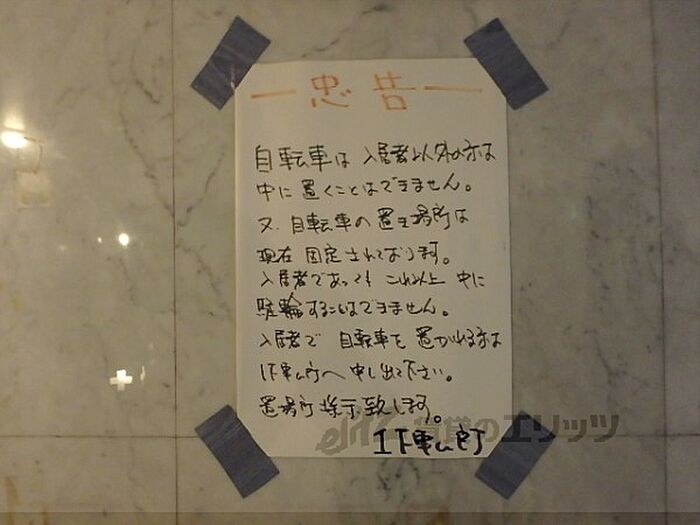 ー忠告ー
自転車は 入居者以外の方は
中に 置くことはできません。
又、自転車の置き場所は
現在 固定されております。
入居者であっても これ以上 中に
駐輪することはできません。
入居者で 自転車を 置かれる方は
へ 申し出て下さい。
置場所 指示致します。
賃貸のエリッツ